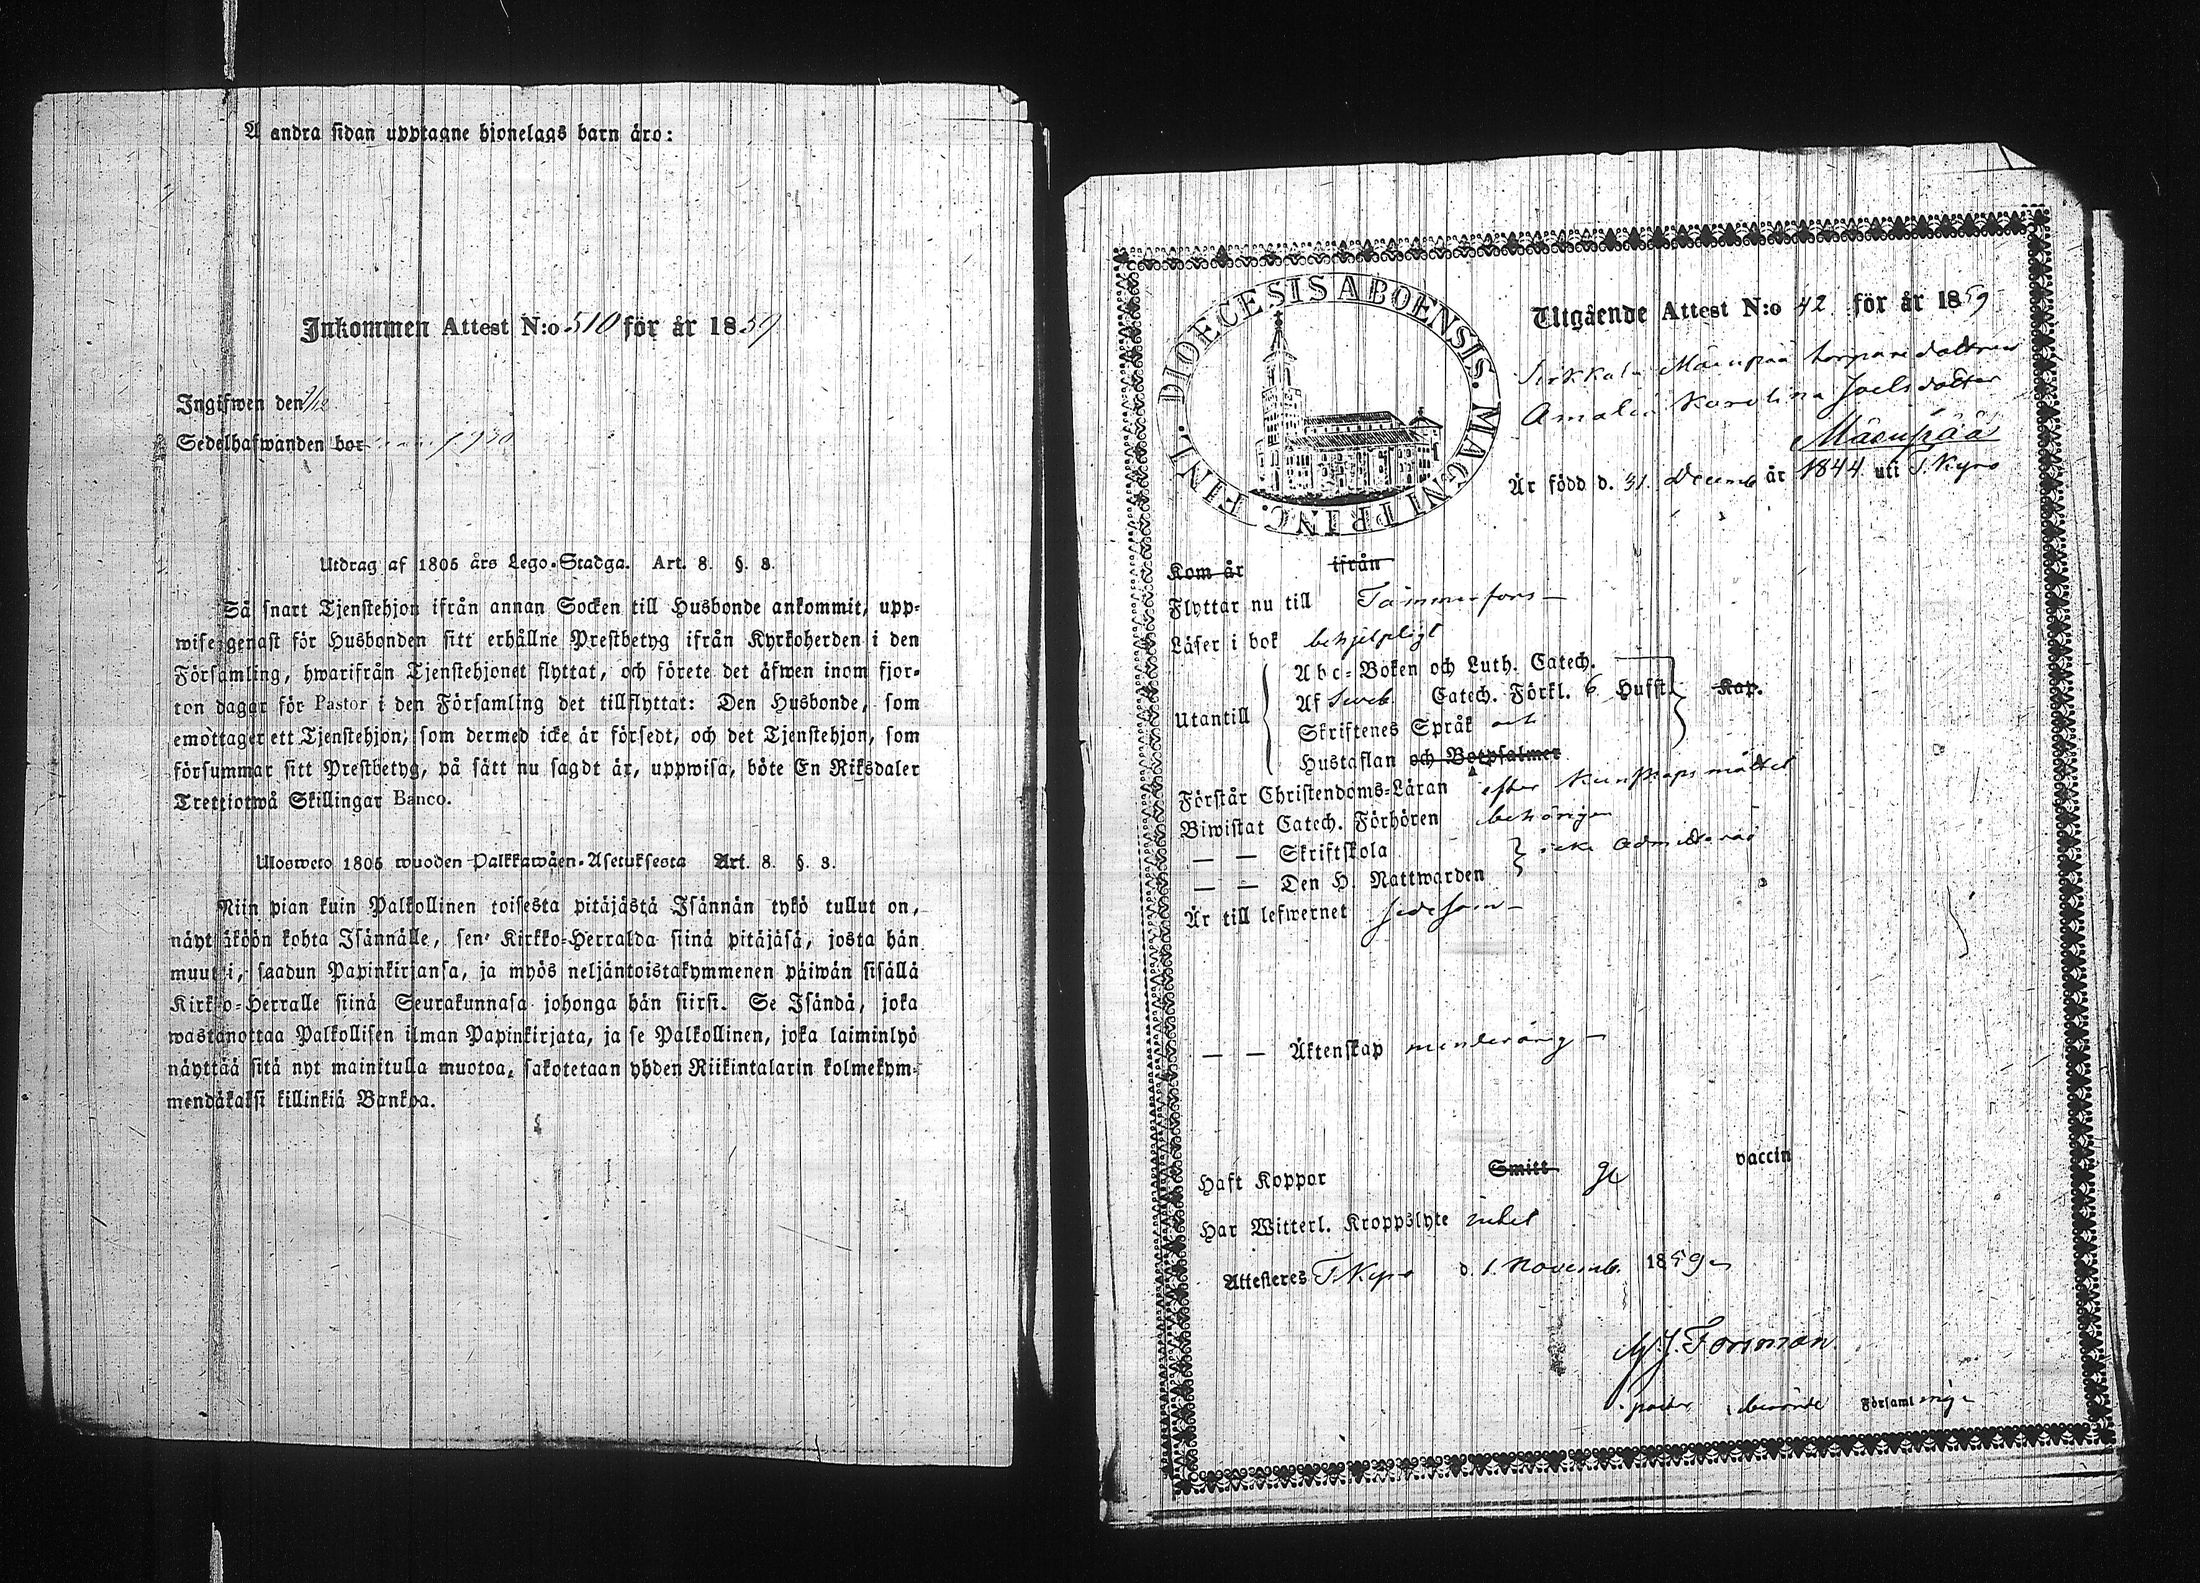 A andra sidan upptagne hjonelags barn äro:
Inkommen Attest N:o 510 för år 1859
Ingifwen den 2/12
Sedelhafwanden bor
Utdrag af 1805 års Lego-Stadga. Art. 8. §. 3.
Så snart Tjenstehjon ifrån annan Socken till Husbonde ankommit, upp-
wise genast för Husbonden sitt erhållne Prestbetyg ifrån Kyrkoherden i den
Församling, hwarifrån Tjenstehjonet flyttat, och förete det äfwen inom fjor-
ton dagar för Pastor i den Församling det tillflyttat: Den Husbonde, som
emottager ett Tjenstehjon, som dermed icke är försedt, och det Tjenstehjon, som
försummar sitt Prestbetyg, på sätt nu sagdt är, uppwisa, böte En Riksdaler
Trettiotwå Skillingar Banco.
Ulosweto 1805 wuoden Palkkawäen-Asetuksesta Art. 8. §. 3.
Niin pian kuin Palkollinen toisesta pitäjästä Isännän tykö tullut on,
näyttäköön kohta Isännälle, sen Kirkko-Herralda siinä pitäjäsä, josta hän
muutti, saadun Papinkirjansa, ja myös neljäntoistakymmenen päiwän sisällä
Kirkko-Herralle siinä Seurakunnasa johonga hän siirsi. Se Isändä, joka
wastanottaa Palkollisen ilman Papinkirjata, ja se Palkollinen, joka laiminlyö
näyttää sitä nyt mainitulla muotoa, sakotetaan yhden Riikintalarin kolmekym-
mendäkaksi killinkiä Bankoa.
DIOECESIS ABOENSIS. MAGNI PRINC. FINL.
Utgående Attest N:o 42 för år 1859
Sirkkala Mäenpää torparedottren
Amalia Karolina Joelsdotter
Mäenpää
Är född d. 31 Decemb år 1844 uti T. Kyro
Kom år ifrån
Flyttar nu till Tammerfors
Läser i bok behjelpligt
Utantill
Abc-Boken och Luth. Catech.
Af Sveb. Catech. Förkl. 6 Hufst. Kap.
Skriftenes Språk och
Hustaflan och Botpsalmer
Förstår Christendoms-Läran efter kunskapsmåttet
Biwistat Catech. Förhören behörigen
— — Skriftskola icke admitterad
— — Den H. Nattwarden
Är till lefwernet sedesam
— — Äktenskap minderårig
Haft Koppor Smitt ge vaccin
Har Witterl. Kroppslyte intet
Attesteres T. Kyro d. 1. Novemb. 1859
M. J. Forsman
Församl